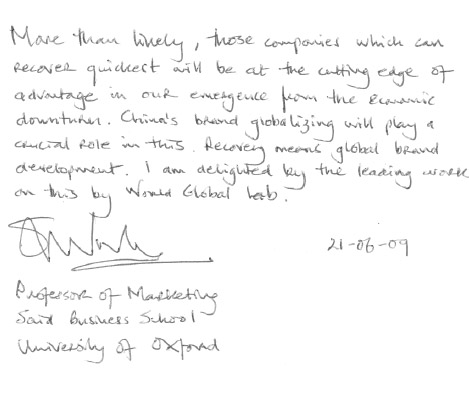 More than likely, those companies which can
recover quickest will be at the cutting edge of
advantage in our emergence from the economic
downturn. China's brand globalizing will play a
crucial role in this. Recovery means global brand
development. I am delighted by the leading work
on this by World Global Lab.
21-06-09
Professor of Marketing
Said Business School
University of Oxford